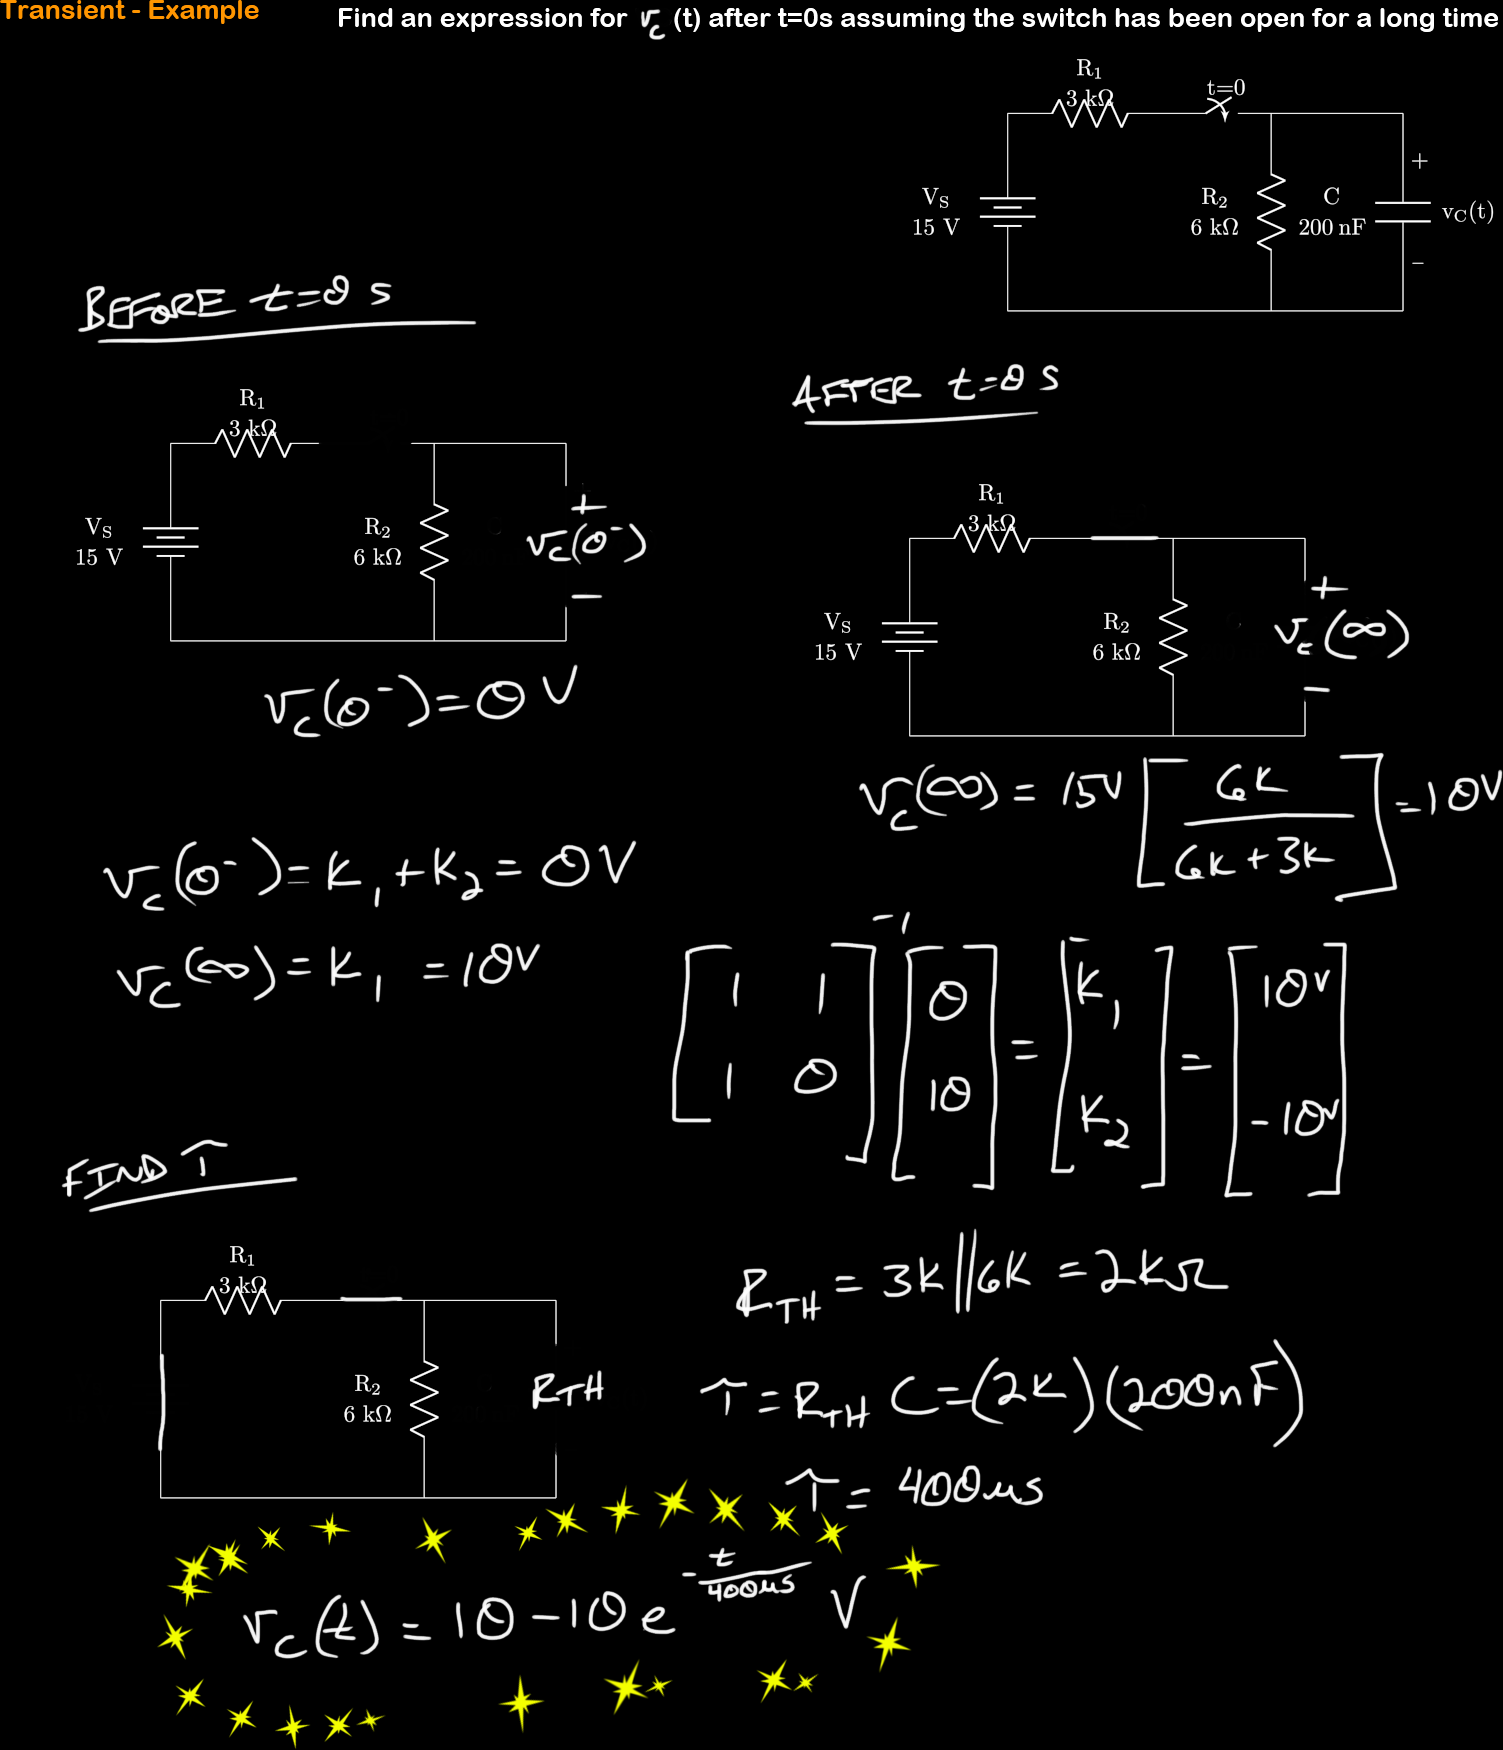 Transient - Example
Find an expression for v_c (t) after t=0s assuming the switch has been open for a long time
R₁
3 kΩ
t=0
V_S
15 V
R₂
6 kΩ
C
200 nF
+
v_C(t)
−
BEFORE t=0 s
R₁
3 kΩ
V_S
15 V
R₂
6 kΩ
+
v_c(0⁻)
−
v_c(0⁻) = 0 V
AFTER t=0 s
R₁
3 kΩ
V_S
15 V
R₂
6 kΩ
+
v_c(∞)
−
v_c(∞) = 15V [6K / (6K + 3K)] = 10V
v_c(0⁻) = K₁ + K₂ = 0 V
v_c(∞) = K₁ = 10V
[1 1; 1 0]⁻¹ [0; 10] = [K₁; K₂] = [10V; -10V]
FIND τ
R₁
3 kΩ
R₂
6 kΩ
R_TH
R_TH = 3K||6K = 2KΩ
τ = R_TH C = (2K)(200nF)
τ = 400us
v_c(t) = 10 - 10 e^(-t/400us) V